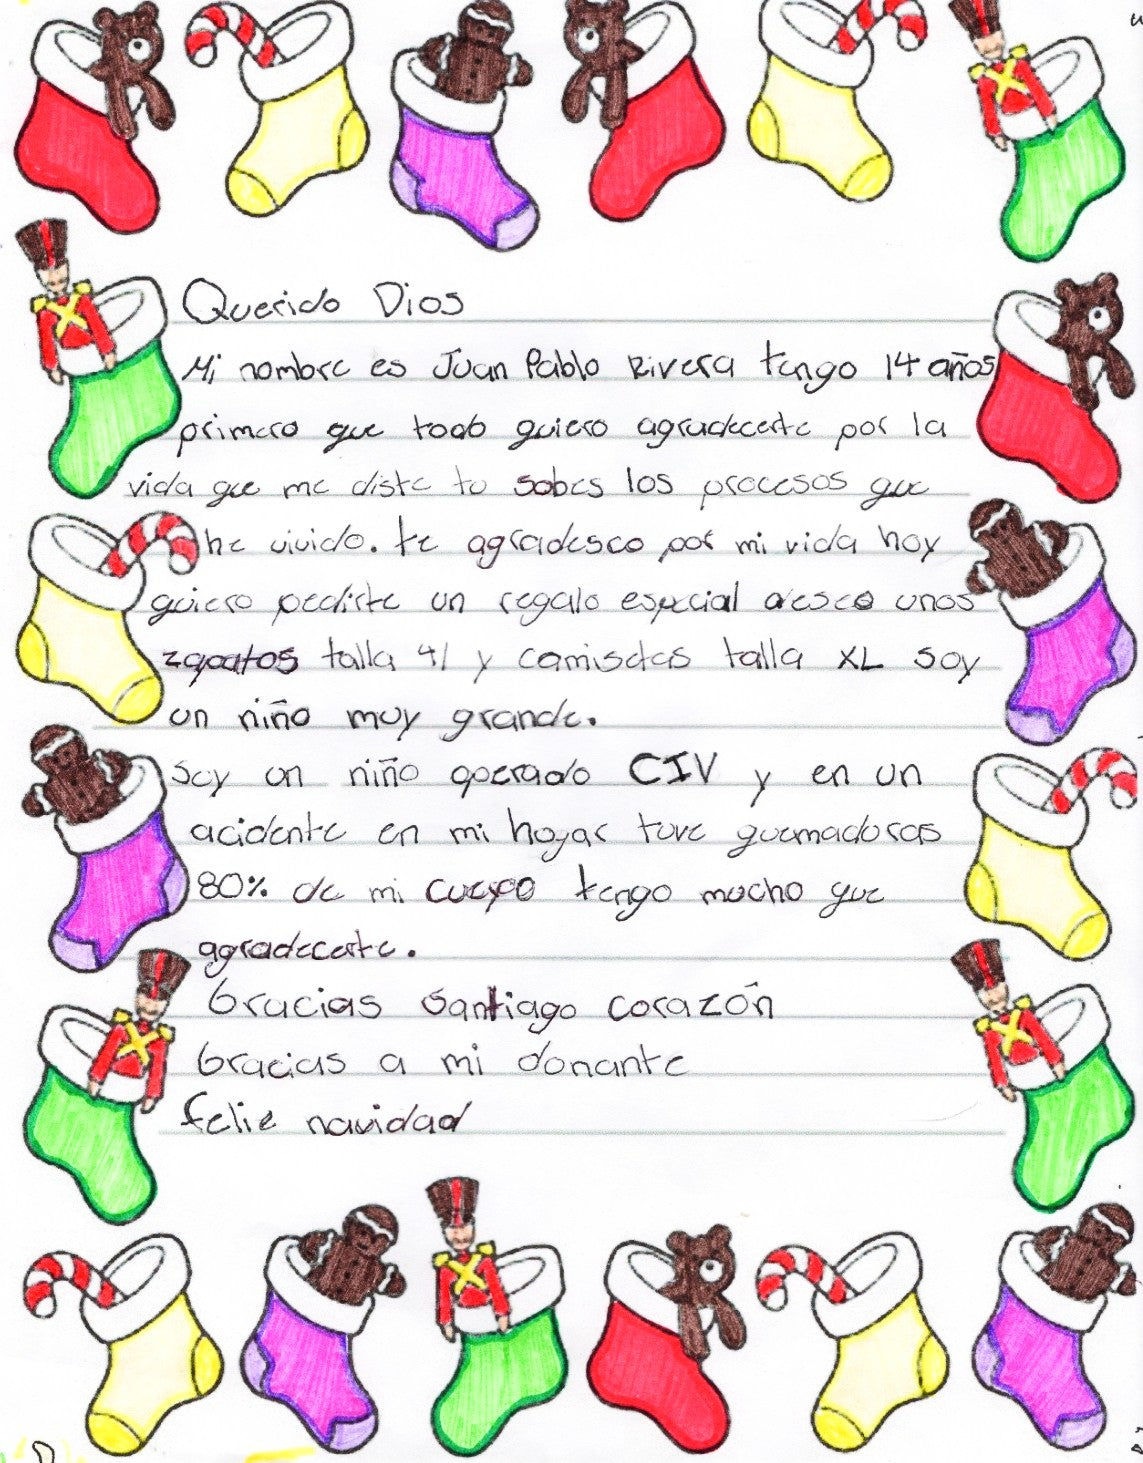 Querido Dios
Mi nombre es Juan Pablo Rivera tengo 14 años
primero que todo quiero agradecerte por la
vida que me diste tu sabes los procesos que
he vivido. te agradesco por mi vida hoy
quiero pedirte un regalo especial deseo unos
zapatos talla 41 y camisetas talla XL soy
un niño muy grande.
Soy un niño operado CIV y en un
acidente en mi hogar tuve quemadoras
80% de mi cuerpo tengo mucho que
agradecerte.
Gracias Santiago corazón
Gracias a mi donante
feliz navidad